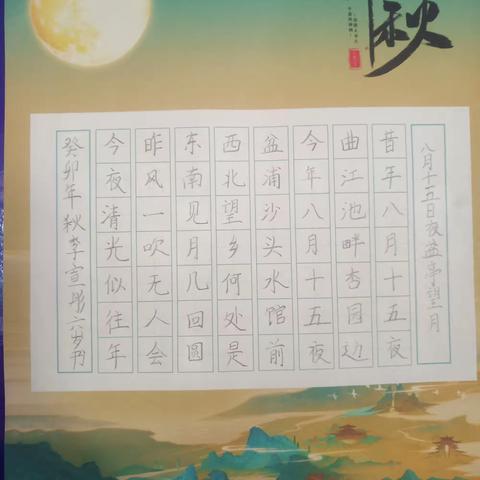 秋
八月十五日夜益亭望月
昔年八月十五夜
曲江池畔杏园边
今年八月十五夜
盆浦沙头水馆前
西北望乡何处是
东南见月几回圆
昨风一吹无人会
今夜清光似往年
癸卯年秋李宣彤六岁书